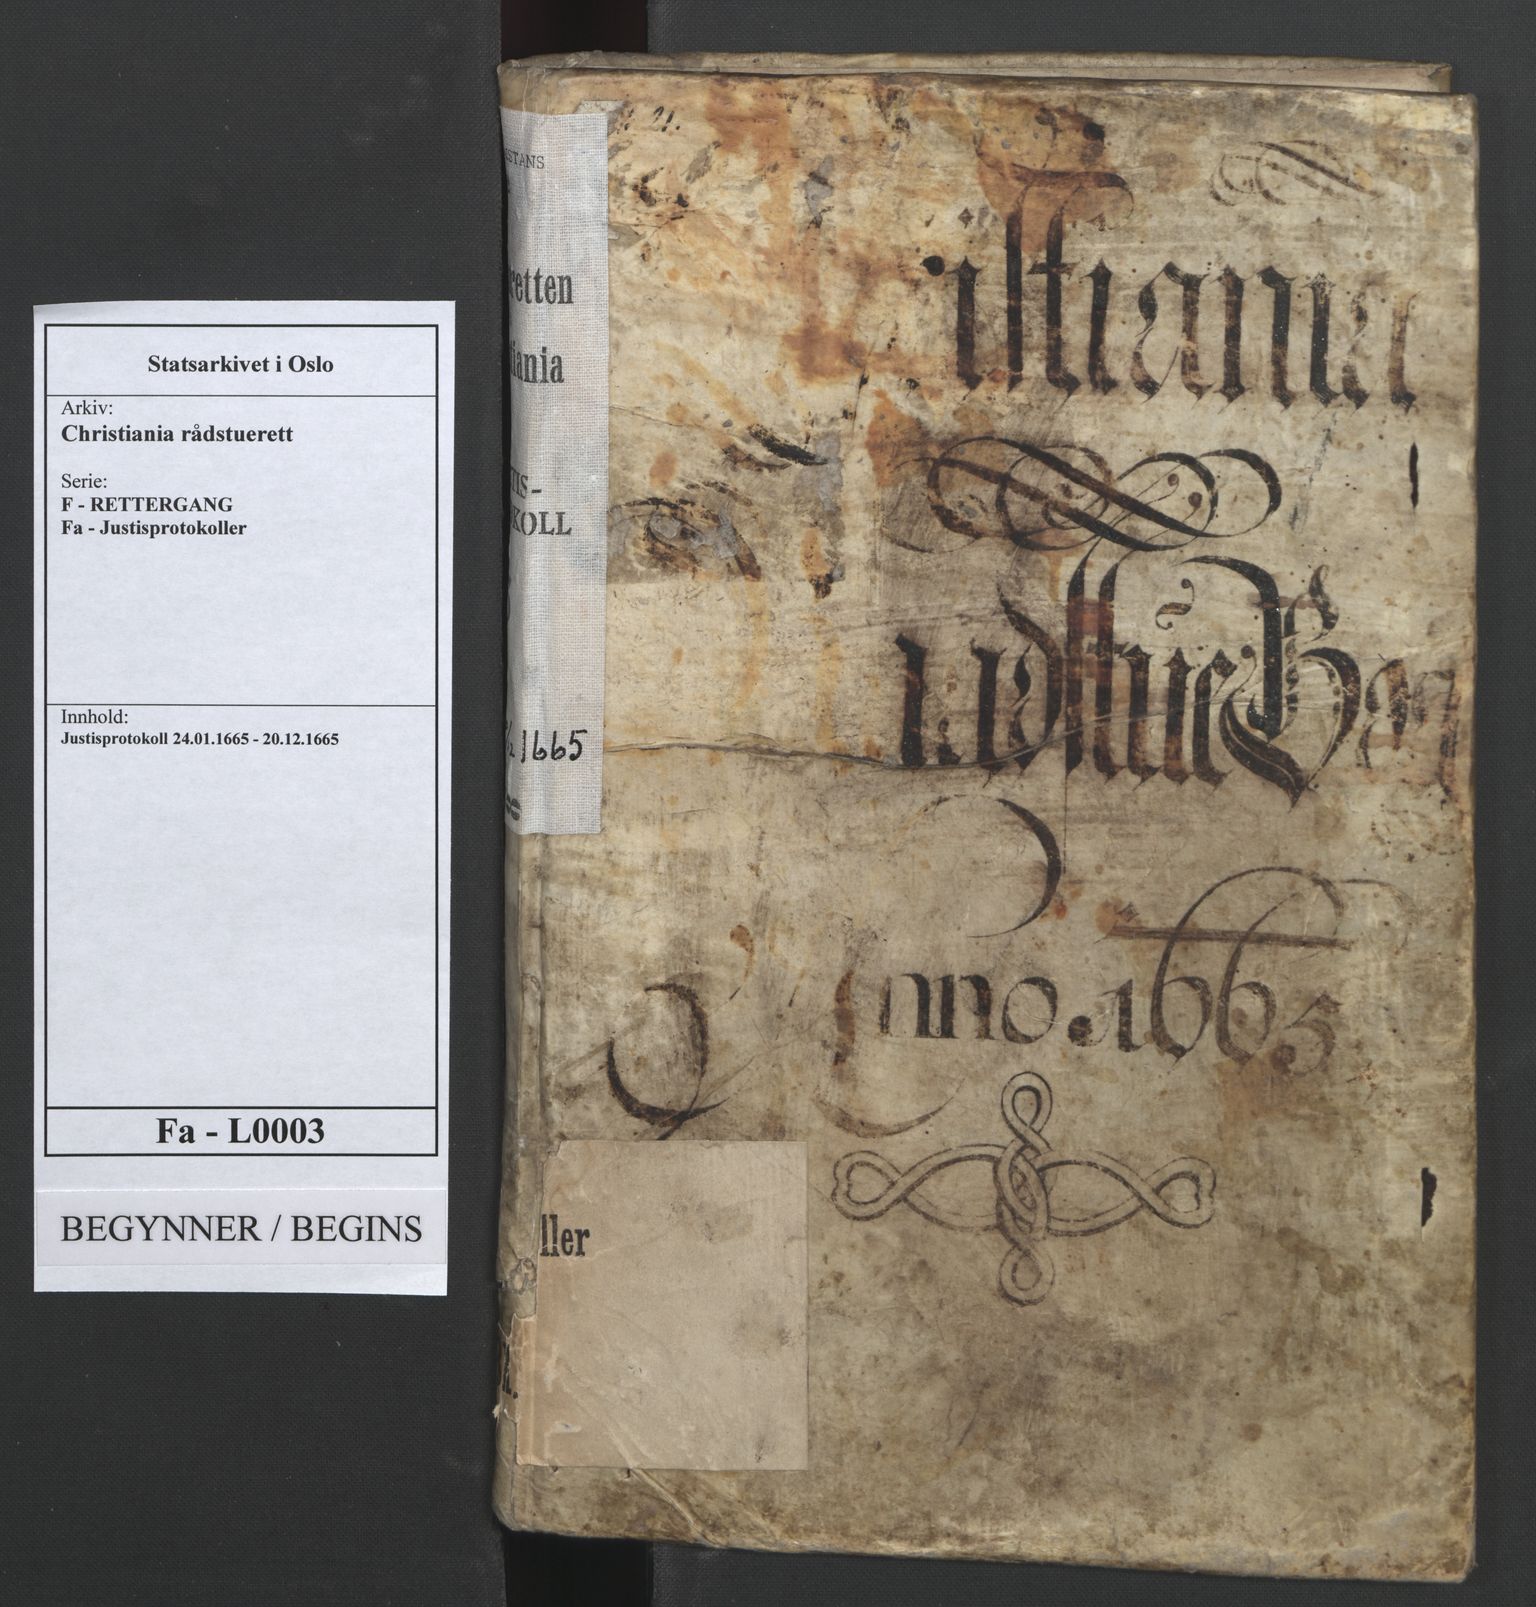 Statsarkivet i Oslo
Arkiv:
Christiania rådstuerett
Serie:
F - RETTERGANG
Fa - Justisprotokoller
Innhold:
Justisprotokoll 24.01.1665 - 20.12.1665
Fa - L0003
BEGYNNER / BEGINS
21.
ISTANS
retten
iania
TIS-
KOLL
1665
istiania
adstue
Anno. 1665
ller